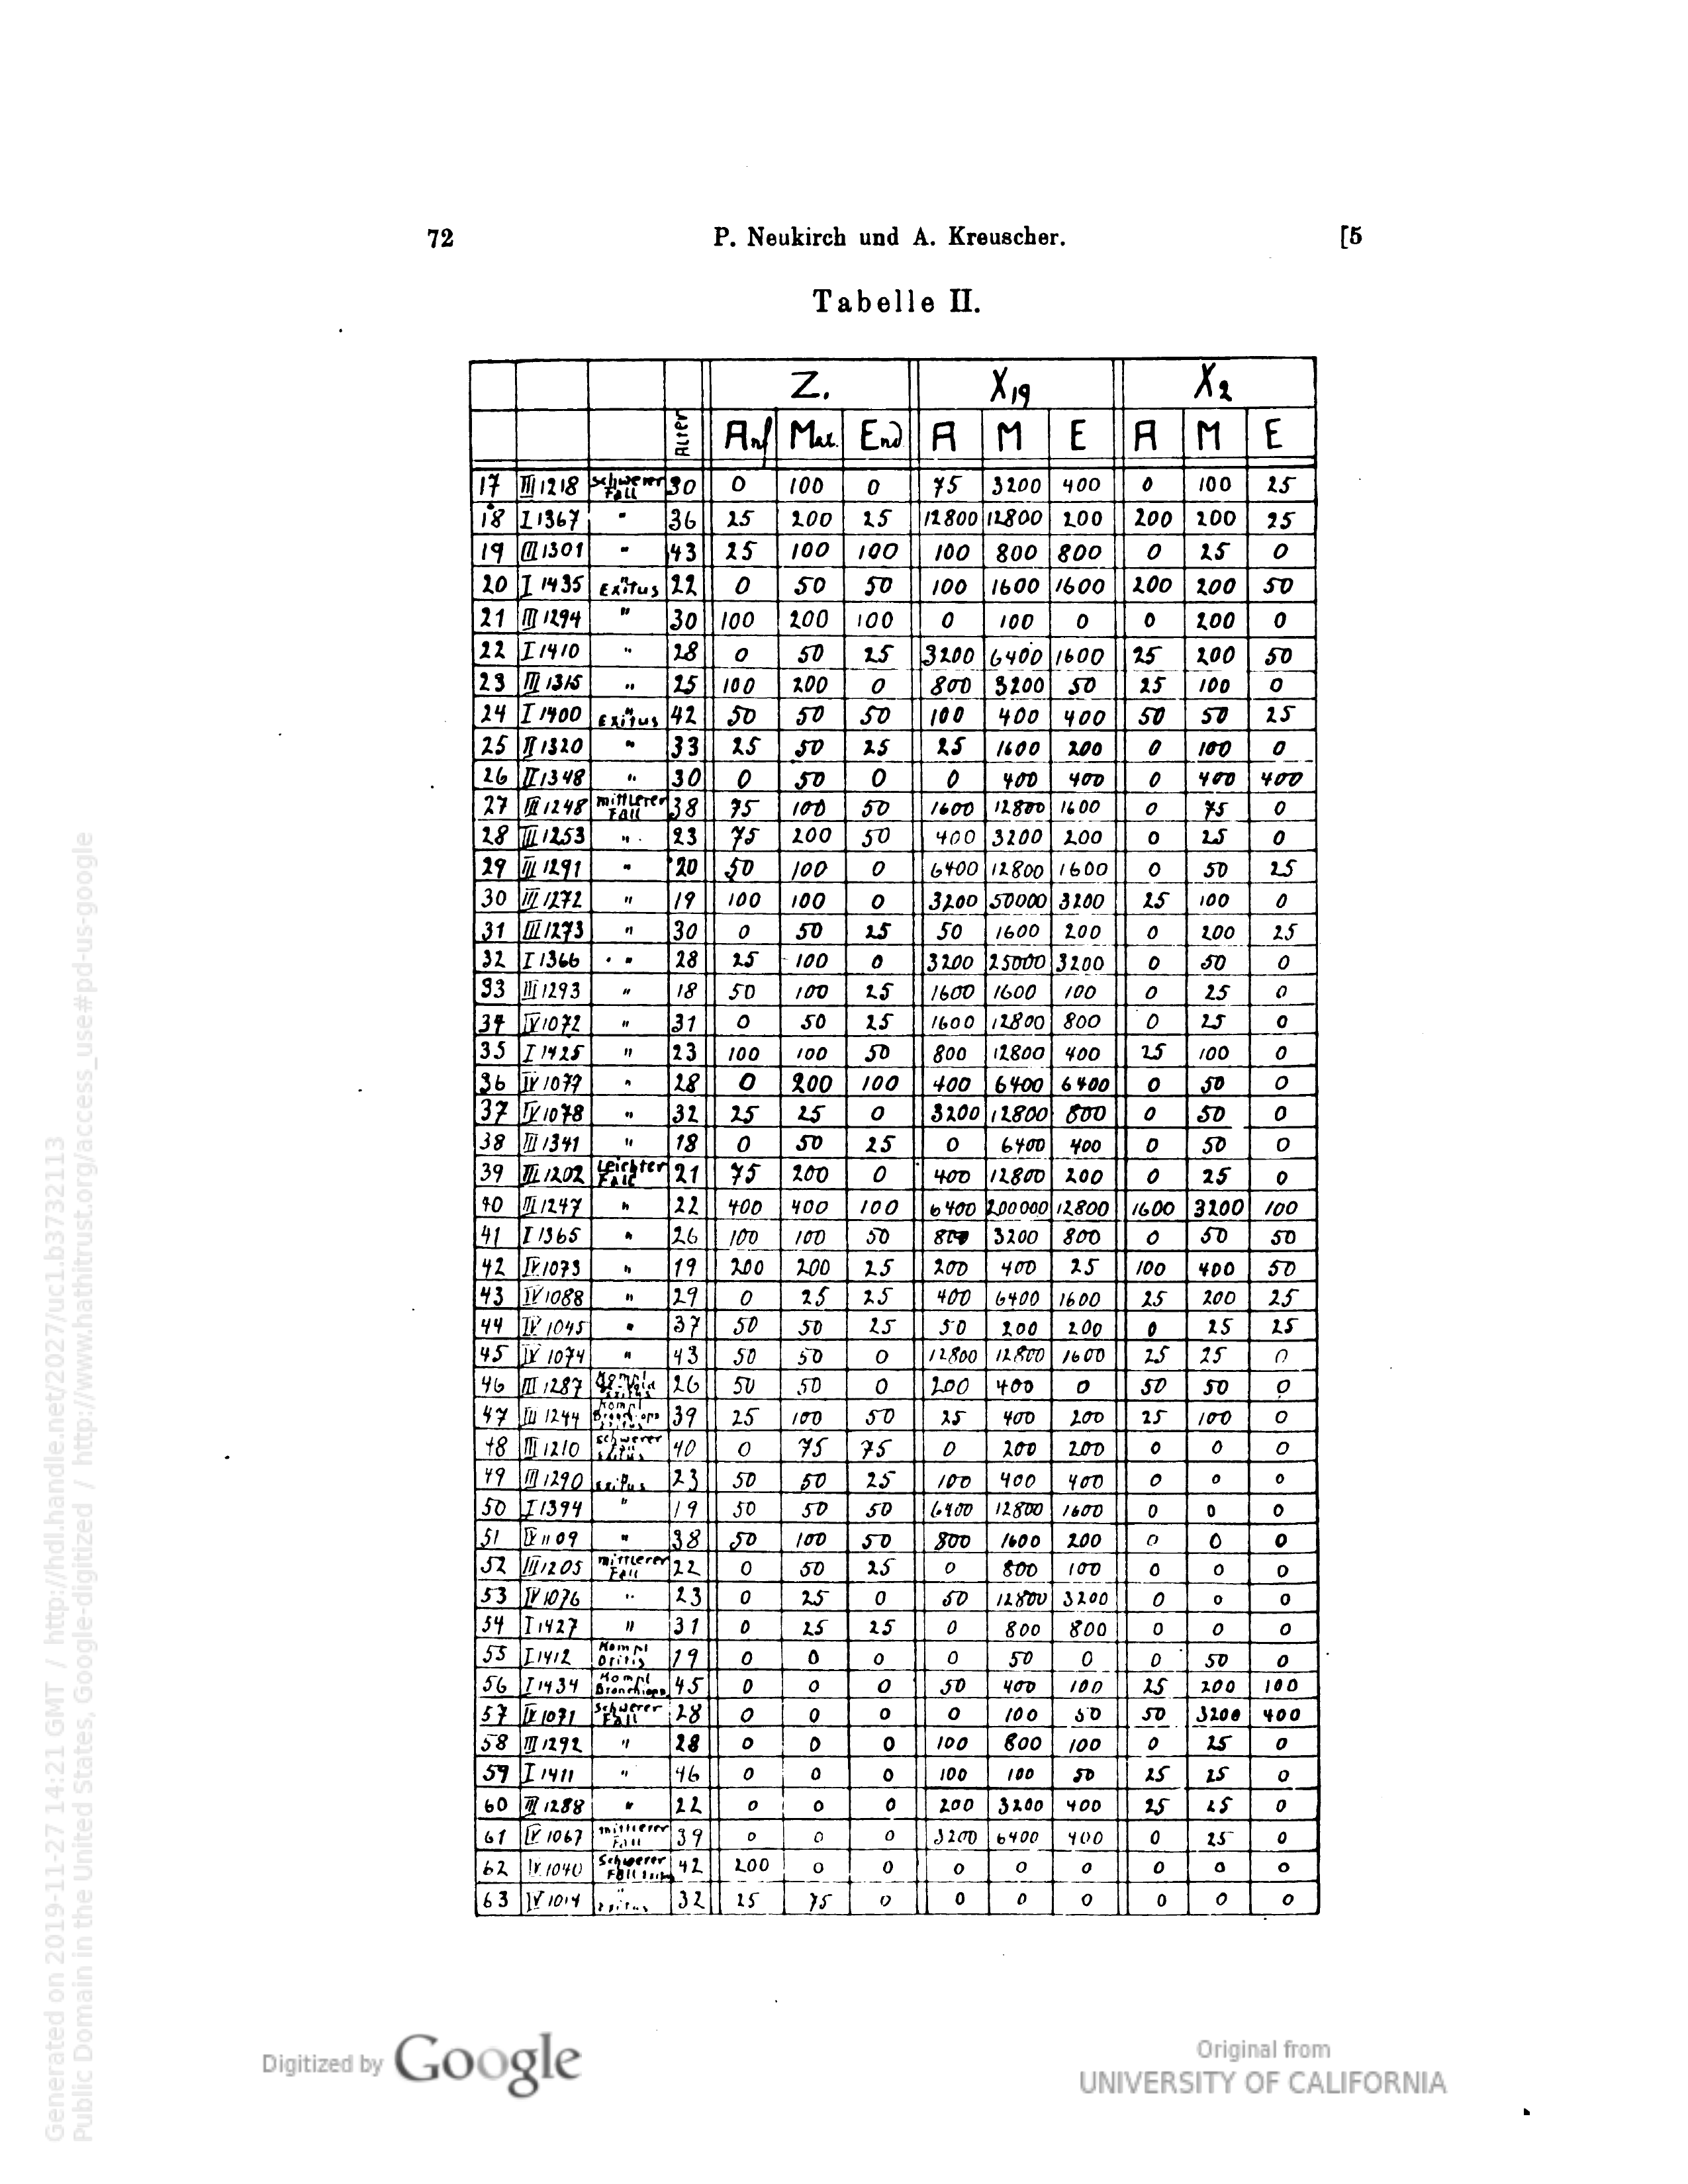 72 P. Neukirch und A. Kreuscher. [5
Tabelle II.
Z. X19 X2
Alter Anf Max. End A M E A M E
17 III 1218 schwerer Fall 30 0 100 0 75 3200 400 0 100 25
18 I 1367 " 36 25 200 25 12800 12800 200 200 200 25
19 III 1301 " 43 25 100 100 100 800 800 0 25 0
20 I 1435 " Exitus 22 0 50 50 100 1600 1600 200 200 50
21 III 1294 " 30 100 200 100 0 100 0 0 200 0
22 I 1410 " 28 0 50 25 3200 6400 1600 25 200 50
23 III 1315 " 25 100 200 0 800 3200 50 25 100 0
24 I 1400 " Exitus 42 50 50 50 100 400 400 50 50 25
25 II 1320 " 33 25 50 25 25 1600 200 0 100 0
26 II 1348 " 30 0 50 0 0 400 400 0 400 400
27 III 1248 mittlerer Fall 38 75 100 50 1600 12800 1600 0 75 0
28 III 1253 " 23 75 200 50 400 3200 200 0 25 0
29 III 1291 " 20 50 100 0 6400 12800 1600 0 50 25
30 III 1272 " 19 100 100 0 3200 50000 3200 25 100 0
31 III 1273 " 30 0 50 25 50 1600 200 0 200 25
32 I 1366 " 28 25 100 0 3200 25000 3200 0 50 0
33 III 1293 " 18 50 100 25 1600 1600 100 0 25 0
34 IV 1072 " 31 0 50 25 1600 12800 800 0 25 0
35 I 1425 " 23 100 100 50 800 12800 400 25 100 0
36 IV 1077 " 28 0 200 100 400 6400 6400 0 50 0
37 IV 1078 " 32 25 25 0 3200 12800 800 0 50 0
38 III 1341 " 18 0 50 25 0 6400 400 0 50 0
39 III 1202 Leichter Fall 21 75 200 0 400 12800 200 0 25 0
40 III 1247 " 22 400 400 100 6400 200000 12800 1600 3200 100
41 I 1365 " 26 100 100 50 800 3200 800 0 50 50
42 IV 1073 " 19 200 200 25 200 400 25 100 400 50
43 IV 1088 " 29 0 25 25 400 6400 1600 25 200 25
44 IV 1045 " 37 50 50 25 50 200 200 0 25 25
45 IV 1074 " 43 50 50 0 12800 12800 1600 25 25 0
46 III 1287 Exitus 26 50 50 0 200 400 0 50 50 0
47 III 1244 Kompl 39 25 100 50 25 400 200 25 100 0
48 III 1210 schwerer 40 0 75 75 0 200 200 0 0 0
49 III 1290 Exitus 23 50 50 25 100 400 400 0 0 0
50 I 1394 " 19 50 50 50 6400 12800 1600 0 0 0
51 IV 1109 " 38 50 100 50 800 1600 200 0 0 0
52 III 1205 mittlerer Fall 22 0 50 25 0 800 100 0 0 0
53 IV 1076 " 23 0 25 0 50 12800 3200 0 0 0
54 I 1427 " 31 0 25 25 0 800 800 0 0 0
55 I 1412 Kompl 19 0 0 0 0 50 0 0 50 0
56 I 1434 Kompl Bronchiopn. 45 0 0 0 50 400 100 25 200 100
57 IV 1071 Schwerer Fall 28 0 0 0 0 100 50 50 3200 400
58 III 1292 " 28 0 0 0 100 800 100 0 25 0
59 I 1411 " 46 0 0 0 100 100 50 25 25 0
60 III 1288 " 22 0 0 0 200 3200 400 25 25 0
61 IV 1067 mittlerer Fall 39 0 0 0 3200 6400 400 0 25 0
62 IV 1040 Schwerer Fall 42 200 0 0 0 0 0 0 0 0
63 IV 1014 " Exitus 32 25 75 0 0 0 0 0 0 0
Digitized by Google
Original from
UNIVERSITY OF CALIFORNIA
Generated on 2019-11-27 14:21 GMT / http://hdl.handle.net/2027/uc1.b3732113
Public Domain in the United States, Google-digitized / http://www.hathitrust.org/access_use#pd-us-google